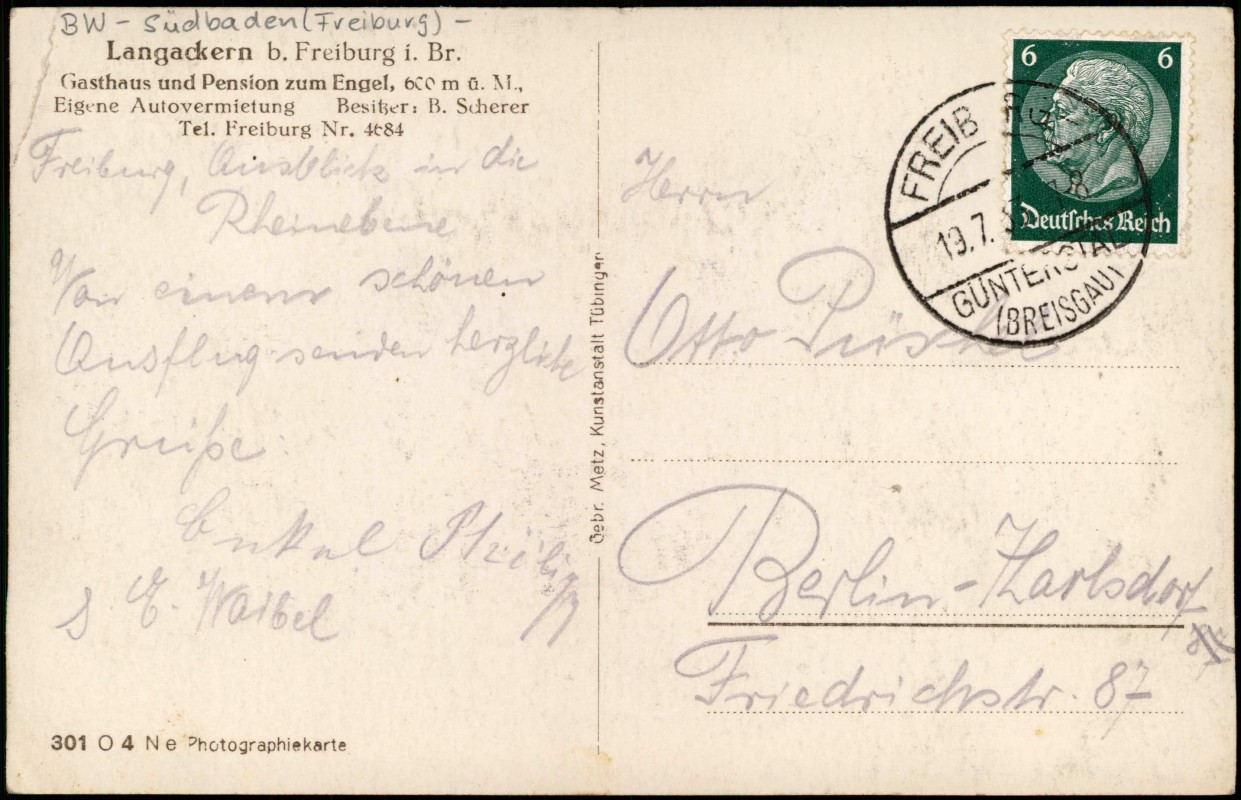 BW - Südbaden (Freiburg) -
Langackern b. Freiburg i. Br.
Gasthaus und Pension zum Engel, 600 m ü. M.,
Eigene Autovermietung Besitzer: B. Scherer
Tel. Freiburg Nr. 4684
Freiburg, Ausblick in die
Rheinebene
Von einem schönen
Ausflug senden herzliche
Grüße
E. Waibel
301 O 4 Ne Photographiekarte
Gebr. Metz, Kunstanstalt Tübingen
6 6
Deutsches Reich
FREIBURG
19.7.3
GÜNTERSTAL
(BREISGAU)
Herrn
Otto
Berlin-Karlsdorf
Friedrichstr. 87